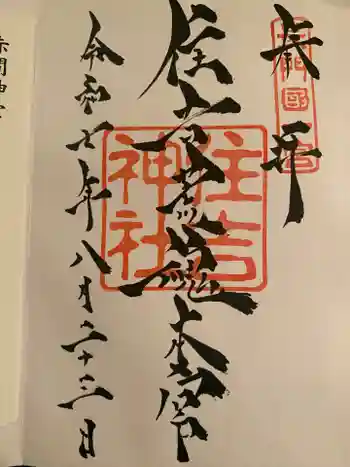 奉拝
長門國一宮
住吉荒魂本宮
住吉
神社
令和七年八月二十三日
赤間神宮